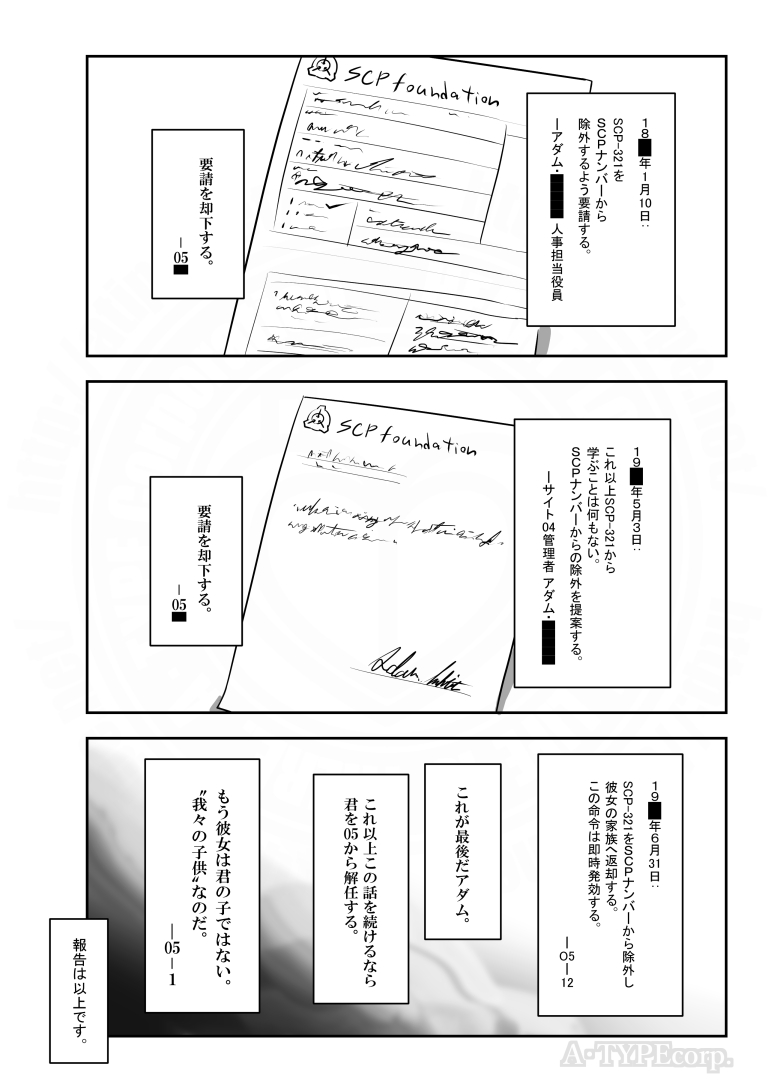 SCP foundation
18██年1月10日：
SCP-321を
SCPナンバーから
除外するよう要請する。
―アダム・████ 人事担当役員
要請を却下する。
―05█
SCP foundation
19██年5月3日：
これ以上SCP-321から
学ぶことは何もない。
SCPナンバーからの除外を提案する。
―サイト04管理者 アダム・████
要請を却下する。
―05█
19██年6月31日：
SCP-321をSCPナンバーから除外し
彼女の家族へ返却する。
この命令は即時発効する。
―O5―12
これが最後だアダム。
これ以上この話を続けるなら
君を05から解任する。
もう彼女は君の子ではない。
“我々の子供”なのだ。
―05―1
報告は以上です。
A・TYPEcorp.